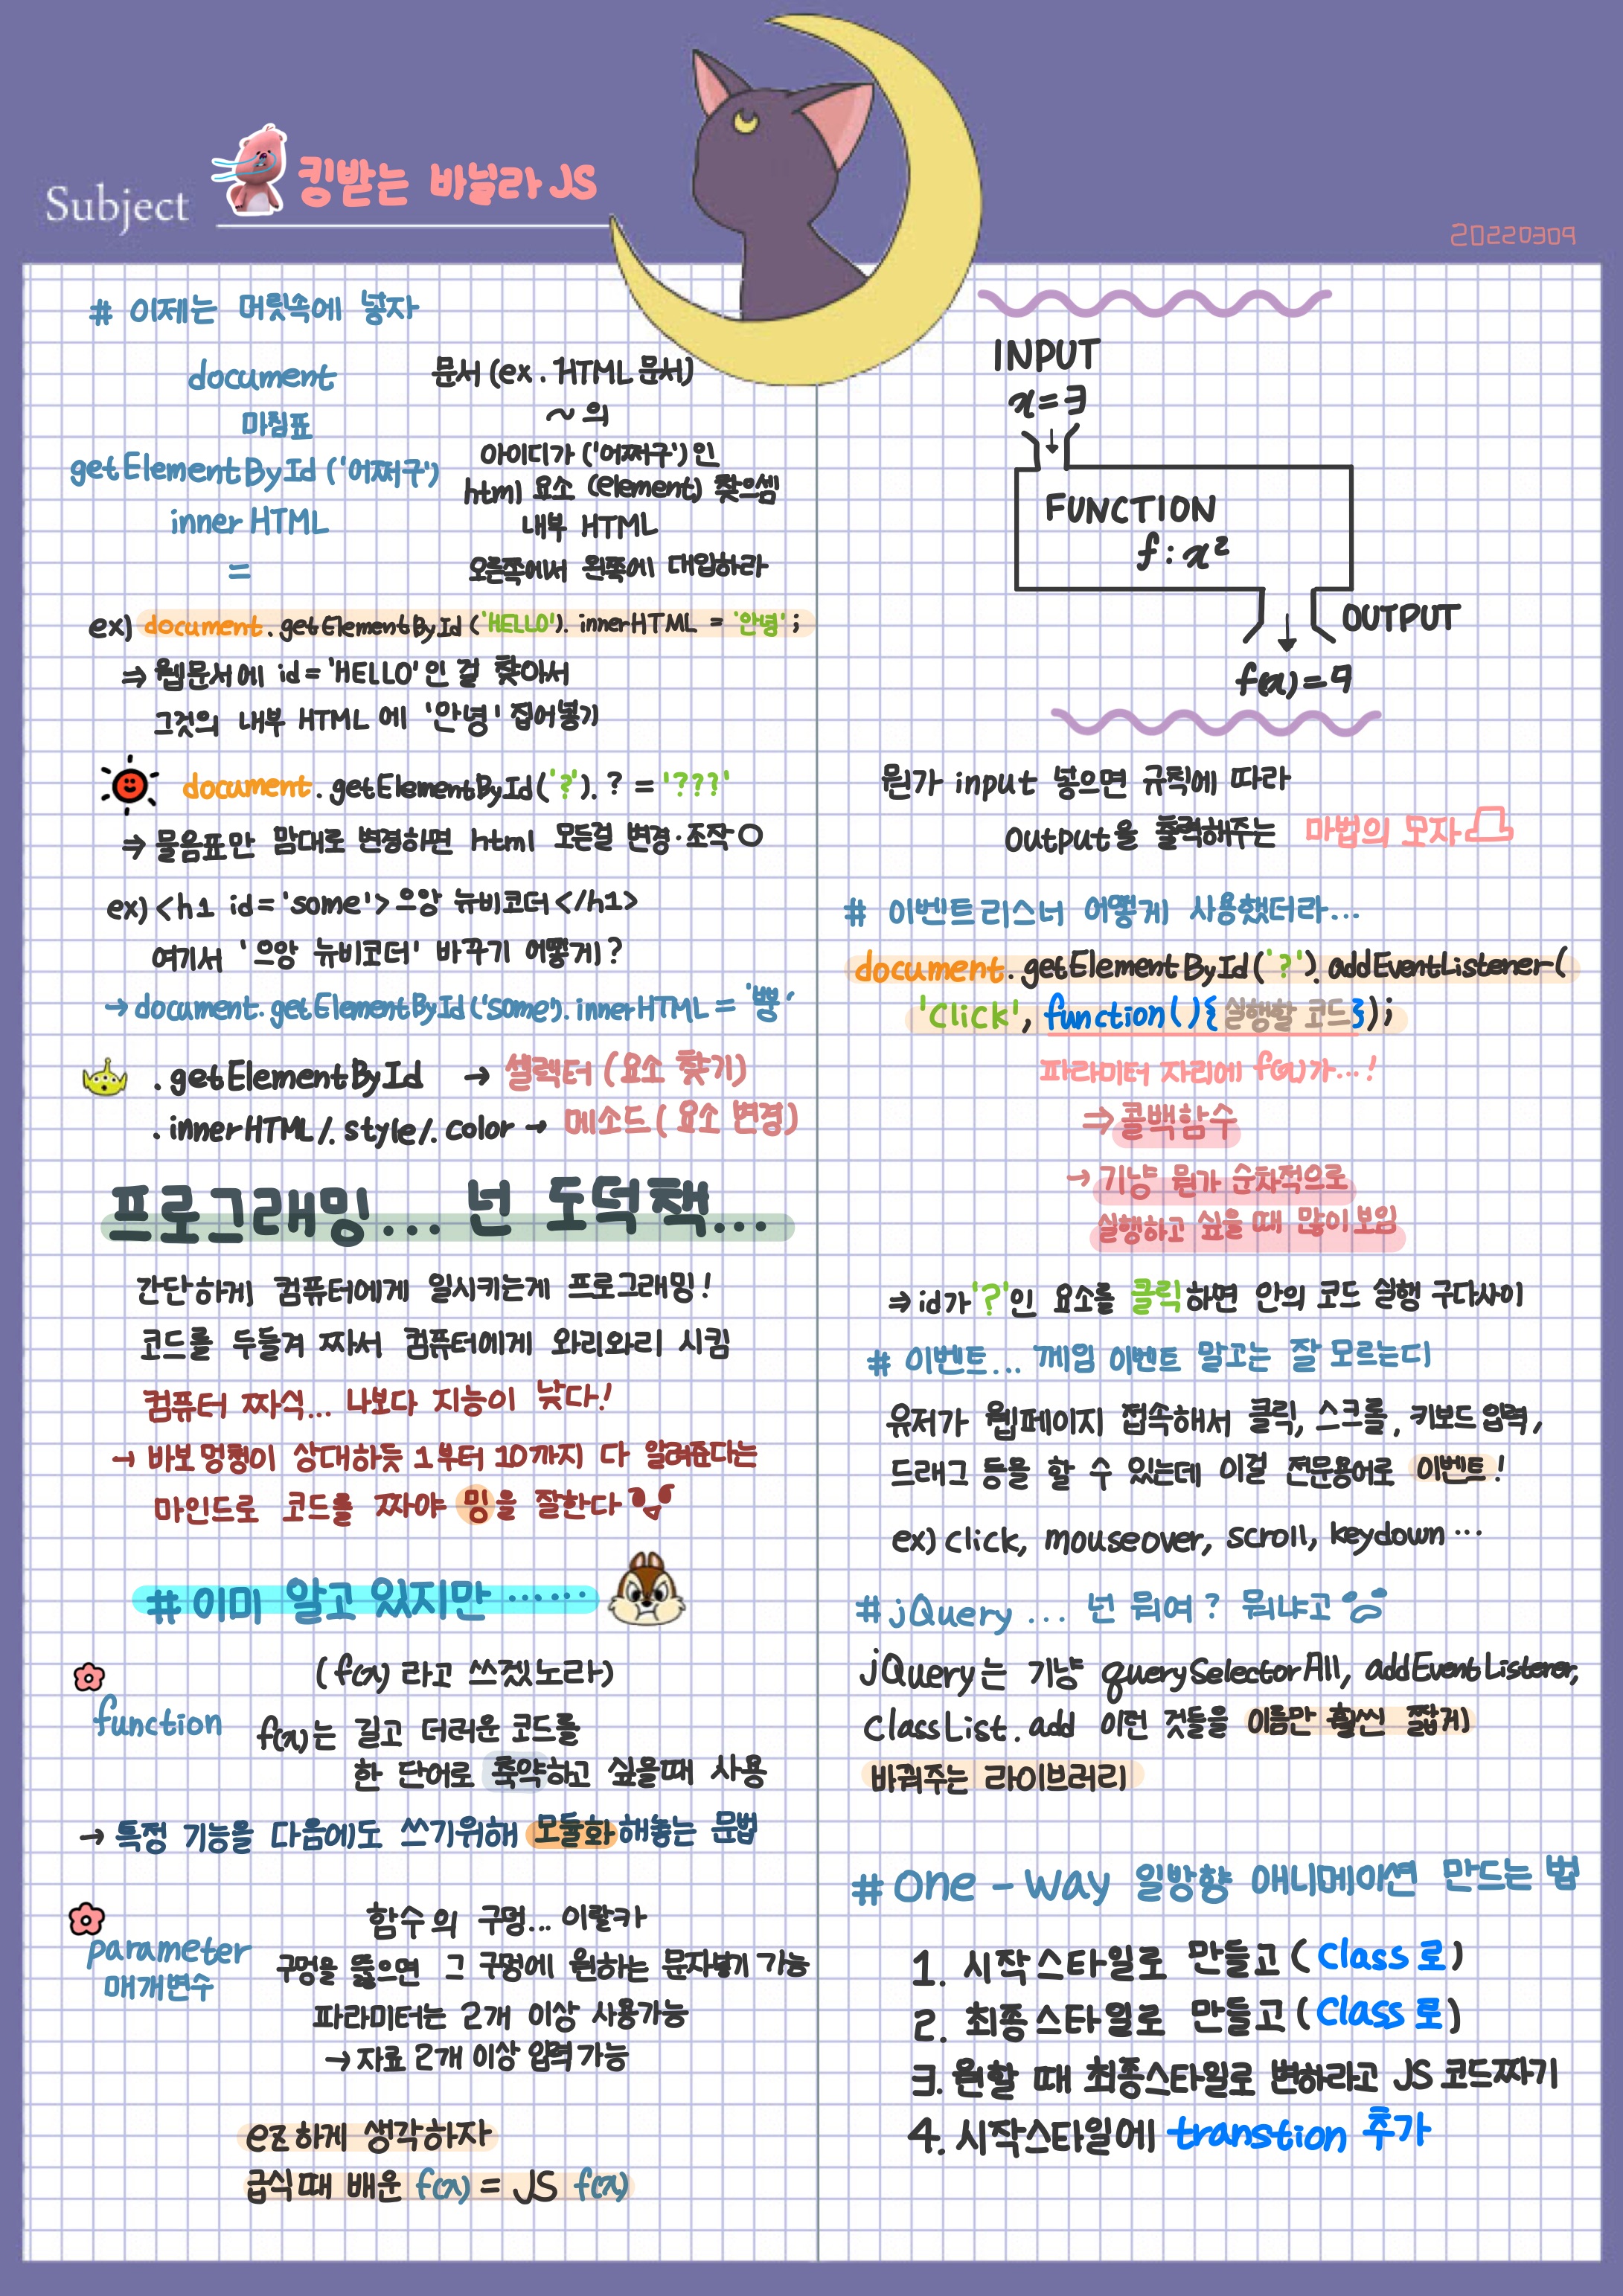 Subject
킹받는 바닐라 JS
20220309
# 이제는 머릿속에 넣자
document 문서 (ex. HTML 문서)
마침표 ~ 의
getElementById ('어쩌구') 아이디가 ('어쩌구')인
html 요소 (element) 찾으셈
inner HTML 내부 HTML
= 오른쪽에서 왼쪽에 대입하라
ex) document.getElementById('HELLO').innerHTML = '안녕';
⇒ 웹문서에 id='HELLO'인 걸 찾아서
그것의 내부 HTML에 '안녕' 집어넣기
document.getElementById('?').? = '???'
⇒ 물음표만 맘대로 변경하면 html 모든걸 변경·조작 O
ex) <h1 id='some'>으앙 뉴비코더</h1>
여기서 '으앙 뉴비코더' 바꾸기 어떻게?
→ document.getElementById('some').innerHTML = '뿡'
.getElementById → 셀렉터 (요소 찾기)
.innerHTML/.style/.color → 메소드 (요소 변경)
프로그래밍... 넌 도덕책...
간단하게 컴퓨터에게 일시키는게 프로그래밍!
코드를 두들겨 짜서 컴퓨터에게 와리와리 시킴
컴퓨터 짜식... 나보다 지능이 낮다!
→ 바보멍청이 상대하듯 1부터 10까지 다 알려준다는
마인드로 코드를 짜야 밍을 잘한다
# 이미 알고 있지만 ......
(f(x) 라고 쓰겠노라)
function f(x)는 길고 더러운 코드를
한 단어로 축약하고 싶을때 사용
→ 특정 기능을 다음에도 쓰기위해 모듈화해놓는 문법
함수의 구멍... 이랄카
parameter 구멍을 뚫으면 그 구멍에 원하는 문자넣기 가능
매개변수
파라미터는 2개 이상 사용가능
→ 자료 2개 이상 입력 가능
ez하게 생각하자
급식때 배운 f(x) = JS f(x)
INPUT
x=3
↓
FUNCTION
f : x²
↓ OUTPUT
f(x)=9
뭔가 input 넣으면 규칙에 따라
output을 출력해주는 마법의 모자
# 이벤트리스너 어떻게 사용했더라...
document.getElementById('?').addEventListener(
'Click', function(){실행할 코드});
파라미터 자리에 f(x)가...!
⇒ 콜백함수
→ 기냥 뭔가 순차적으로
실행하고 싶을 때 많이 보임
⇒ id가 '?'인 요소를 클릭하면 안의 코드 실행 구다사이
# 이벤트... 께임 이벤트 말고는 잘 모르는디
유저가 웹페이지 접속해서 클릭, 스크롤, 키보드 입력,
드래그 등을 할 수 있는데 이걸 전문용어로 이벤트!
ex) click, mouseover, scroll, keydown ...
# jQuery ... 넌 뭐여? 뭐냐고
jQuery는 기냥 querySelectorAll, addEventListener,
ClassList.add 이런 것들을 이름만 훨씬 짧게
바꿔주는 라이브러리
# One - way 일방향 애니메이션 만드는 법
1. 시작스타일로 만들고 (Class로)
2. 최종스타일로 만들고 (Class로)
3. 원할 때 최종스타일로 변하라고 JS 코드짜기
4. 시작스타일에 transtion 추가